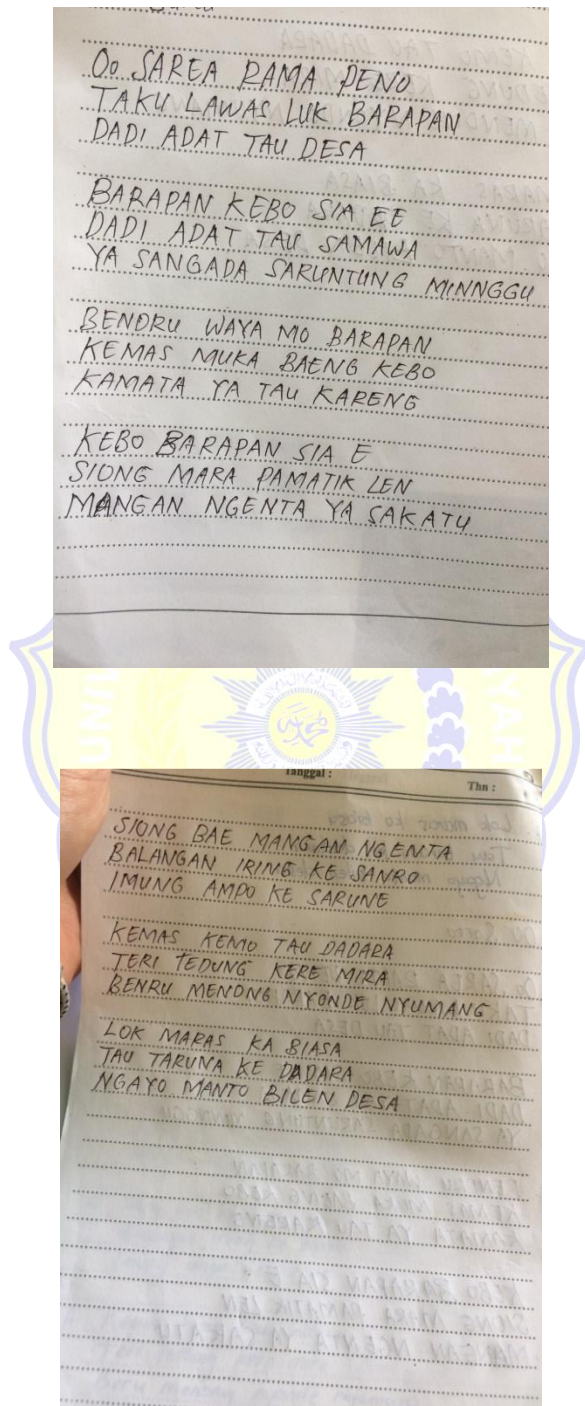 Oo SAREA RAMA PENO
TAKU LAWAS LUK BARAPAN
DADI ADAT TAU DESA
BARAPAN KEBO SIA EE
DADI ADAT TAU SAMAWA
YA SANGADA SARUNTUNG MINNGGU
BENDRU WAYA MO BARAPAN
KEMAS MUKA BAENG KEBO
KAMATA YA TAU KARENG
KEBO BARAPAN SIA E
SIONG MARA PAMATIK LEN
MANGAN NGENTA YA SAKATU
Tanggal :
Thn :
SIONG BAE MANGAN NGENTA
BALANGAN IRING KE SANRO
IMUNG AMPO KE SARUNE
KEMAS KEMO TAU DADARA
TERI TEDUNG KERE MIRA
BENRU MENONG NYONDE NYUMANG
LOK MARAS KA BIASA
TAU TARUNA KE DADARA
NGAYO MANTO BILEN DESA